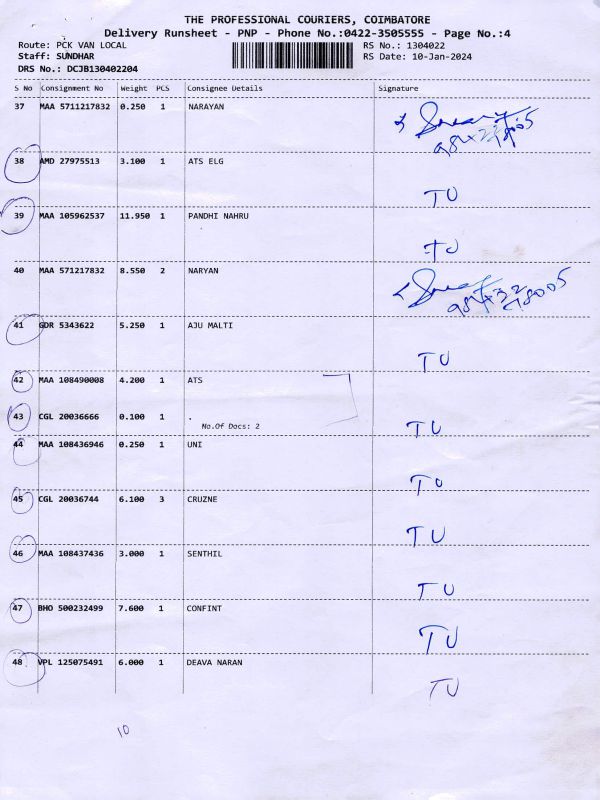 THE PROFESSIONAL COURIERS, COIMBATORE
Delivery Runsheet - PNP - Phone No.:0422-3505555 - Page No.:4
Route: PCK VAN LOCAL RS No.: 1304022
Staff: SUNDHAR RS Date: 10-Jan-2024
DRS No.: DCJB130402204
S No Consignment No Weight PCS Consignee Details Signature
37 MAA 5711217832 0.250 1 NARAYAN
38 AMD 27975513 3.100 1 ATS ELG
TU
39 MAA 105962537 11.950 1 PANDHI NAHRU
TU
40 MAA 571217832 8.550 2 NARYAN
41 GDR 5343622 5.250 1 AJU MALTI
TU
42 MAA 108490008 4.200 1 ATS
43 CGL 20036666 0.100 1 .
No.Of Docs: 2 TU
44 MAA 108436946 0.250 1 UNI
TU
45 CGL 20036744 6.100 3 CRUZNE
TU
46 MAA 108437436 3.000 1 SENTHIL
TU
47 BHO 500232499 7.600 1 CONFINT
TU
48 VPL 125075491 6.000 1 DEAVA NARAN
TU
10